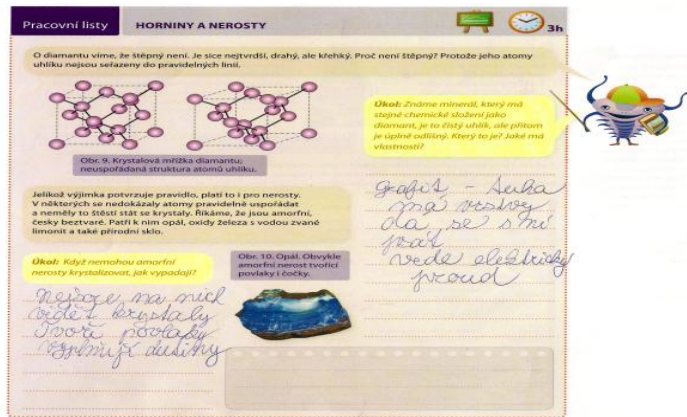 Pracovní listy
HORNINY A NEROSTY
3h
O diamantu víme, že štěpný není. Je sice nejtvrdší, drahý, ale křehký. Proč není štěpný? Protože jeho atomy
uhlíku nejsou seřazeny do pravidelných linií.
Obr. 9. Krystalová mřížka diamantu;
neuspořádaná struktura atomů uhlíku.
Úkol: Známe minerál, který má
stejné chemické složení jako
diamant, je to čistý uhlík, ale přitom
je úplně odlišný. Který to je? Jaké má
vlastnosti?
grafit - tuha
má vrstvy
dá se s ní
psát
vede elektrický
proud
Jelikož výjimka potvrzuje pravidlo, platí to i pro nerosty.
V některých se nedokázaly atomy pravidelně uspořádat
a neměly to štěstí stát se krystaly. Říkáme, že jsou amorfní,
česky beztvaré. Patří k nim opál, oxidy železa s vodou zvané
limonit a také přírodní sklo.
Úkol: Když nemohou amorfní
nerosty krystalizovat, jak vypadají?
Obr. 10. Opál. Obvykle
amorfní nerost tvořící
povlaky i čočky.
na nich
vidět krystaly
Tvoří povlaky
dutiny